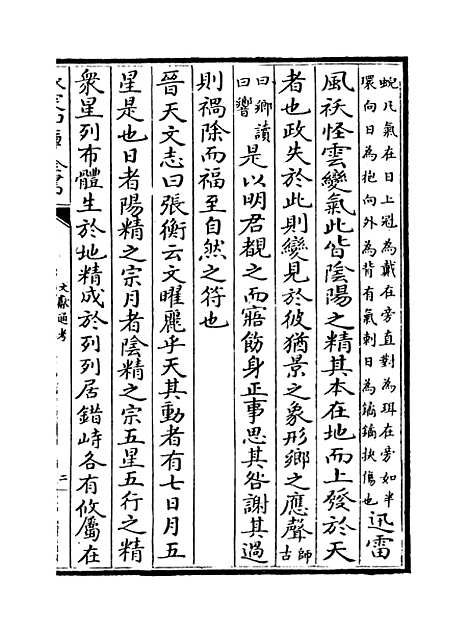 蜺凡氣在日上為冠為戴在旁直對為珥在旁如半
環向日為抱向外為背有氣刺日為鐍鐍抉傷也
迅雷
風祅怪雲變氣此皆陰陽之精其本在地而上發於天
者也政失於此則變見於彼猶景之象形鄉之應聲
師古
曰鄉讀
曰響
是以明君覩之而寤飭身正事思其咎謝其過
則禍除而福至自然之符也
晉天文志曰張衡云文曜麗乎天其動者有七日月五
星是也日者陽精之宗月者陰精之宗五星五行之精
衆星列布體生於地精成於列列居錯峙各有攸屬在
文獻通考
二